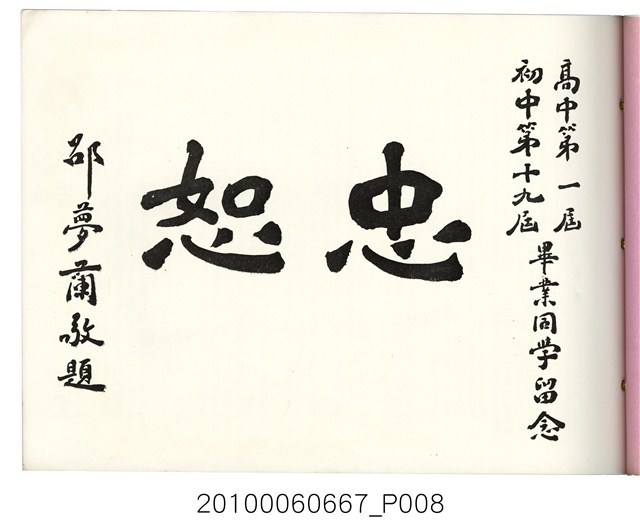 高中第一屆
初中第十九屆
畢業同学留念
忠恕
邵夢蘭敬題
20100060667_P008